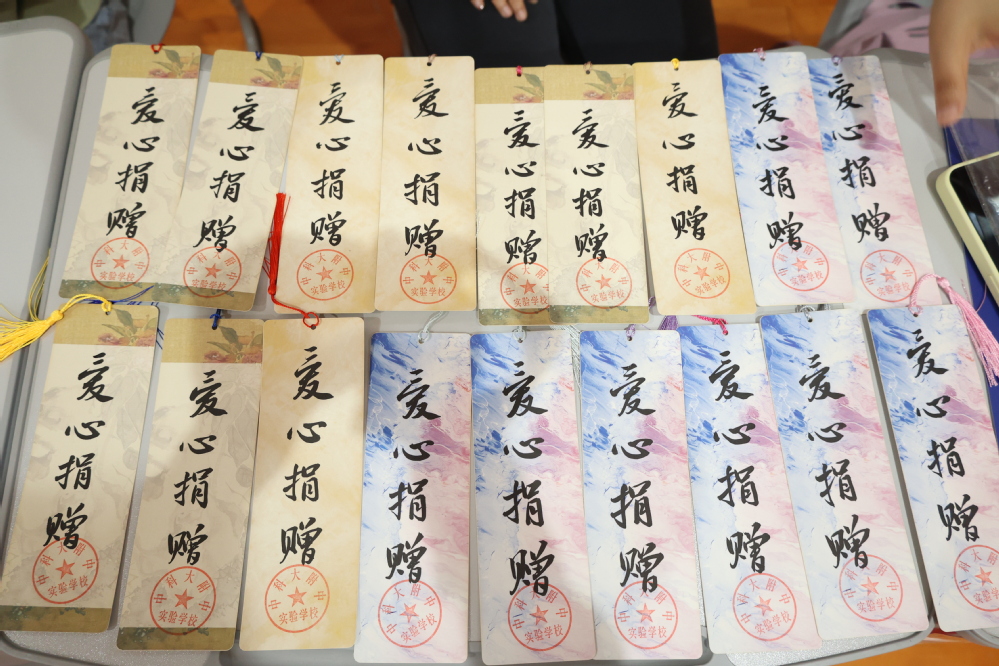 爱心捐赠
中科大附中
实验学校
爱心捐赠
中科大附中
实验学校
爱心捐赠
中科大附中
实验学校
爱心捐赠
中科大附中
实验学校
爱心捐赠
中科大附中
实验学校
爱心捐赠
中科大附中
实验学校
爱心捐赠
中科大附中
实验学校
爱心捐赠
中科大附中
实验学校
爱心捐赠
中科大附中
实验学校
爱心捐赠
中科大附中
实验学校
爱心捐赠
中科大附中
实验学校
爱心捐赠
中科大附中
实验学校
爱心捐赠
中科大附中
实验学校
爱心捐赠
中科大附中
实验学校
爱心捐赠
中科大附中
实验学校
爱心捐赠
中科大附中
实验学校
爱心捐赠
中科大附中
实验学校
爱心捐赠
中科大
实验学校